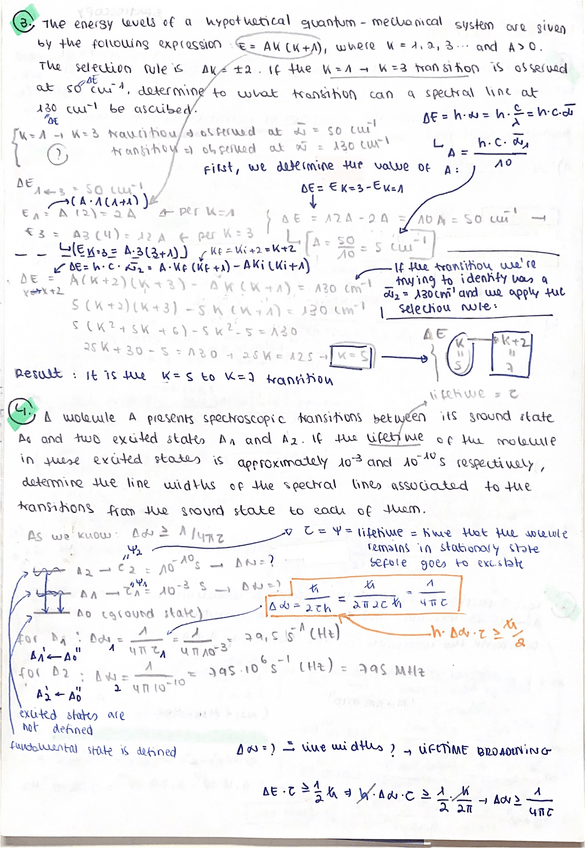 3. The energy levels of a hypothetical quantum-mechanical system are given
by the following expression E = AK(K+1), where K = 1, 2, 3... and A>0.
The selection rule is ΔK = ±2. If the K=1 → K=3 transition is observed
at 50 cm⁻¹, determine to what transition can a spectral line at
ΔE
130 cm⁻¹ be ascribed.
ΔE
ΔE = h·ν = h·c/λ = h·c·ν̄
{ K=1 → K=3 transition → observed at ν̄ = 50 cm⁻¹
? transition → observed at ν̄ = 130 cm⁻¹
A = h·c·ν̄₁/10
First, we determine the value of A:
ΔE 1→3 = 50 cm⁻¹
ΔE = E K=3 - E K=1
(A·1(1+1))
E₁ = A(2) = 2A ← per K=1
{ ΔE = 12A - 2A = 10A = 50 cm⁻¹
E₃ = A3(4) = 12A ← per K=3
A = 50/10 = 5 cm⁻¹
(E K=3 = A·3(3+1))
Kf = Ki+2 = K+2
ΔE = h·c·ν̄₂ = A·Kf(Kf+1) - AKi(Ki+1)
If the transition we're
trying to identify has a
ν̄₂ = 130 cm⁻¹ and we apply the
selection rule:
ΔE K→K+2 = A(K+2)(K+3) - A K(K+1) = 130 cm⁻¹
5(K+2)(K+3) - 5K(K+1) = 130 cm⁻¹
5(K²+5K+6) - 5K²-5 = 130
25K+30-5 = 130 → 25K = 125 → K = 5
ΔE { K → K+2
5 7
Result: it is the K=5 to K=7 transition
lifetime = τ
4. A molecule A presents spectroscopic transitions between its ground state
A₀ and two excited states A₁ and A₂. If the lifetime of the molecule
in these excited states is approximately 10⁻³ and 10⁻¹⁰ s respectively,
determine the line widths of the spectral lines associated to the
transitions from the ground state to each of them.
As we know: Δν ≥ 1/4πτ
τ = Ψ = lifetime = time that the molecule
remains in stationary state
before goes to
Ψ₂
A₂ → τ₂ = 10⁻¹⁰ s → Δν = ?
Ψ₁
A₁ → τ₁ = 10⁻³ s → Δν = ?
A₀ (ground state)
Δν = ħ/2τh = ħ/2π2τħ = 1/4πτ
h·Δν·τ ≥ ħ/2
for A₁: Δν₁ = 1/4πτ₁ = 1/4π10⁻³ = 79,5 s⁻¹ (Hz)
A₁' ← A₀''
for A₂: Δν₂ = 1/4π10⁻¹⁰ = 795·10⁶ s⁻¹ (Hz) = 795 MHz
A₂' ← A₀''
excited states are
not defined
fundamental state is defined
Δν = ? = line widths? → LIFETIME BROADENING
ΔE·τ ≥ 1/2 ħ → h·Δν·τ ≥ 1/2·h/2π → Δν ≥ 1/4πτ